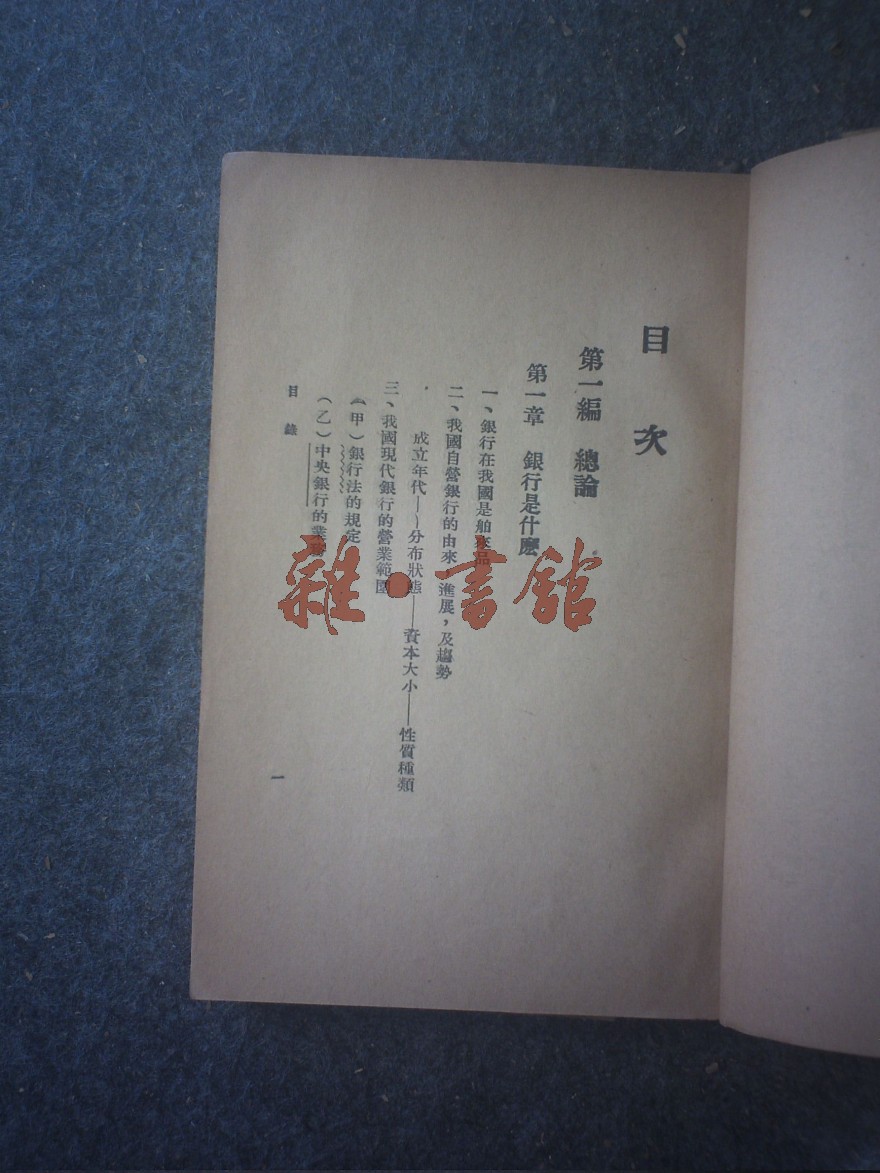 目次
第一編　總論
第一章　銀行是什麽
一、銀行在我國是舶來品
二、我國自營銀行的由來，進展，及趨勢
成立年代——分布狀態——資本大小——性質種類
三、我國現代銀行的營業範圍
（甲）銀行法的規定
（乙）中央銀行的業務
目錄
一
雜·書館